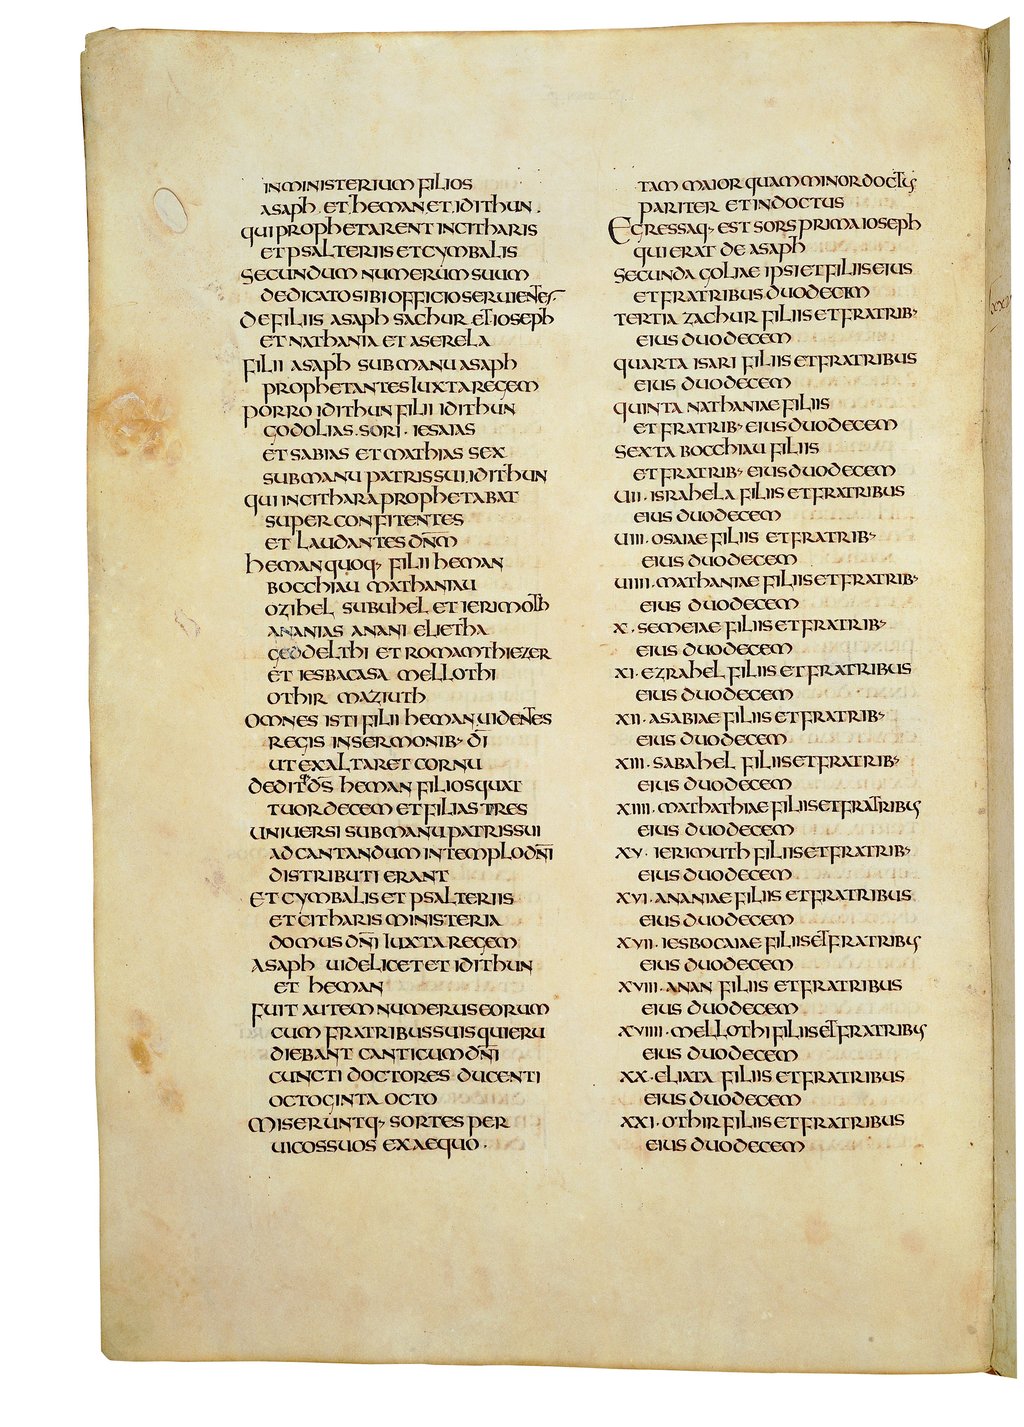 IN MINISTERIUM FILIOS
ASAPH ET HEMAN ET IDITHUN.
QUI PROPHETARENT IN CITHARIS
ET PSALTERIIS ET CYMBALIS
SECUNDUM NUMERUM SUUM
DEDICATO SIBI OFFICIO SERUIENTES
DE FILIIS ASAPH SACHUR ET IOSEPH
ET NATHANIA ET ASERELA
FILII ASAPH SUB MANU ASAPH
PROPHETANTES IUXTA REGEM
PORRO IDITHUN FILII IDITHUN
GODOLIAS. SORI. IESAIAS
ET SABIAS ET MATHIAS SEX
SUB MANU PATRIS SUI IDITHUN
QUI IN CITHARA PROPHETABAT
SUPER CONFITENTES
ET LAUDANTES DN̄M
HEMAN QUOQ, FILII HEMAN
BOCCHIAU MATHANIAU
OZIHEL SUBUHEL ET IERIMOTH
ANANIAS ANANI ELIETHA
GEDDELTHI ET ROMAMTHIEZER
ET IESBACASA MELLOTHI
OTHIR MAZIUTH
OMNES ISTI FILII HEMAN UIDENTES
REGIS IN SERMONIB, D̄I
UT EXALTARET CORNU
DEDITQ D̄S HEMAN FILIOS QUAT
TUORDECEM ET FILIAS TRES
UNIUERSI SUB MANU PATRIS SUI
AD CANTANDUM IN TEMPLO DN̄I
DISTRIBUTI ERANT
ET CYMBALIS ET PSALTERIIS
ET CITHARIS MINISTERIA
DOMUS DN̄I IUXTA REGEM
ASAPH UIDELICET ET IDITHUN
ET HEMAN
FUIT AUTEM NUMERUS EORUM
CUM FRATRIBUS SUIS QUI ERU
DIEBANT CANTICUM DN̄I
CUNCTI DOCTORES DUCENTI
OCTOGINTA OCTO
MISERUNTQ, SORTES PER
UICOS SUOS EX AEQUO.
TAM MAIOR QUAM MINOR DOCTUS
PARITER ET INDOCTUS
EGRESSAQ, EST SORS PRIMA IOSEPH
QUI ERAT DE ASAPH
SECUNDA GOLIAE IPSI ET FILIIS EIUS
ET FRATRIBUS DUODECIM
TERTIA ZACHUR FILIIS ET FRATRIB,
EIUS DUODECEM
QUARTA ISARI FILIIS ET FRATRIBUS
EIUS DUODECEM
QUINTA NATHANIAE FILIIS
ET FRATRIB, EIUS DUODECEM
SEXTA BOCCHIAU FILIIS
ET FRATRIB, EIUS DUODECEM
UII. ISRAHELA FILIIS ET FRATRIBUS
EIUS DUODECEM
UIII. OSAIAE FILIIS ET FRATRIB,
EIUS DUODECEM
UIIII. MATHANIAE FILIIS ET FRATRIB,
EIUS DUODECEM
X. SEMEIAE FILIIS ET FRATRIB,
EIUS DUODECEM
XI. EZRAHEL FILIIS ET FRATRIBUS
EIUS DUODECEM
XII. ASABIAE FILIIS ET FRATRIB,
EIUS DUODECEM
XIII. SABAHEL FILIIS ET FRATRIB,
EIUS DUODECEM
XIIII. MATHATHIAE FILIIS ET FRATRIBUS
EIUS DUODECEM
XV. IERIMUTH FILIIS ET FRATRIB,
EIUS DUODECEM
XVI. ANANIAE FILIIS ET FRATRIBUS
EIUS DUODECEM
XVII. IESBOCAIAE FILIIS ET FRATRIBUS
EIUS DUODECEM
XVIII. ANAN FILIIS ET FRATRIBUS
EIUS DUODECEM
XVIIII. MELLOTHI FILIIS ET FRATRIBUS
EIUS DUODECEM
XX. ELIATA FILIIS ET FRATRIBUS
EIUS DUODECEM
XXI. OTHIR FILIIS ET FRATRIBUS
EIUS DUODECEM